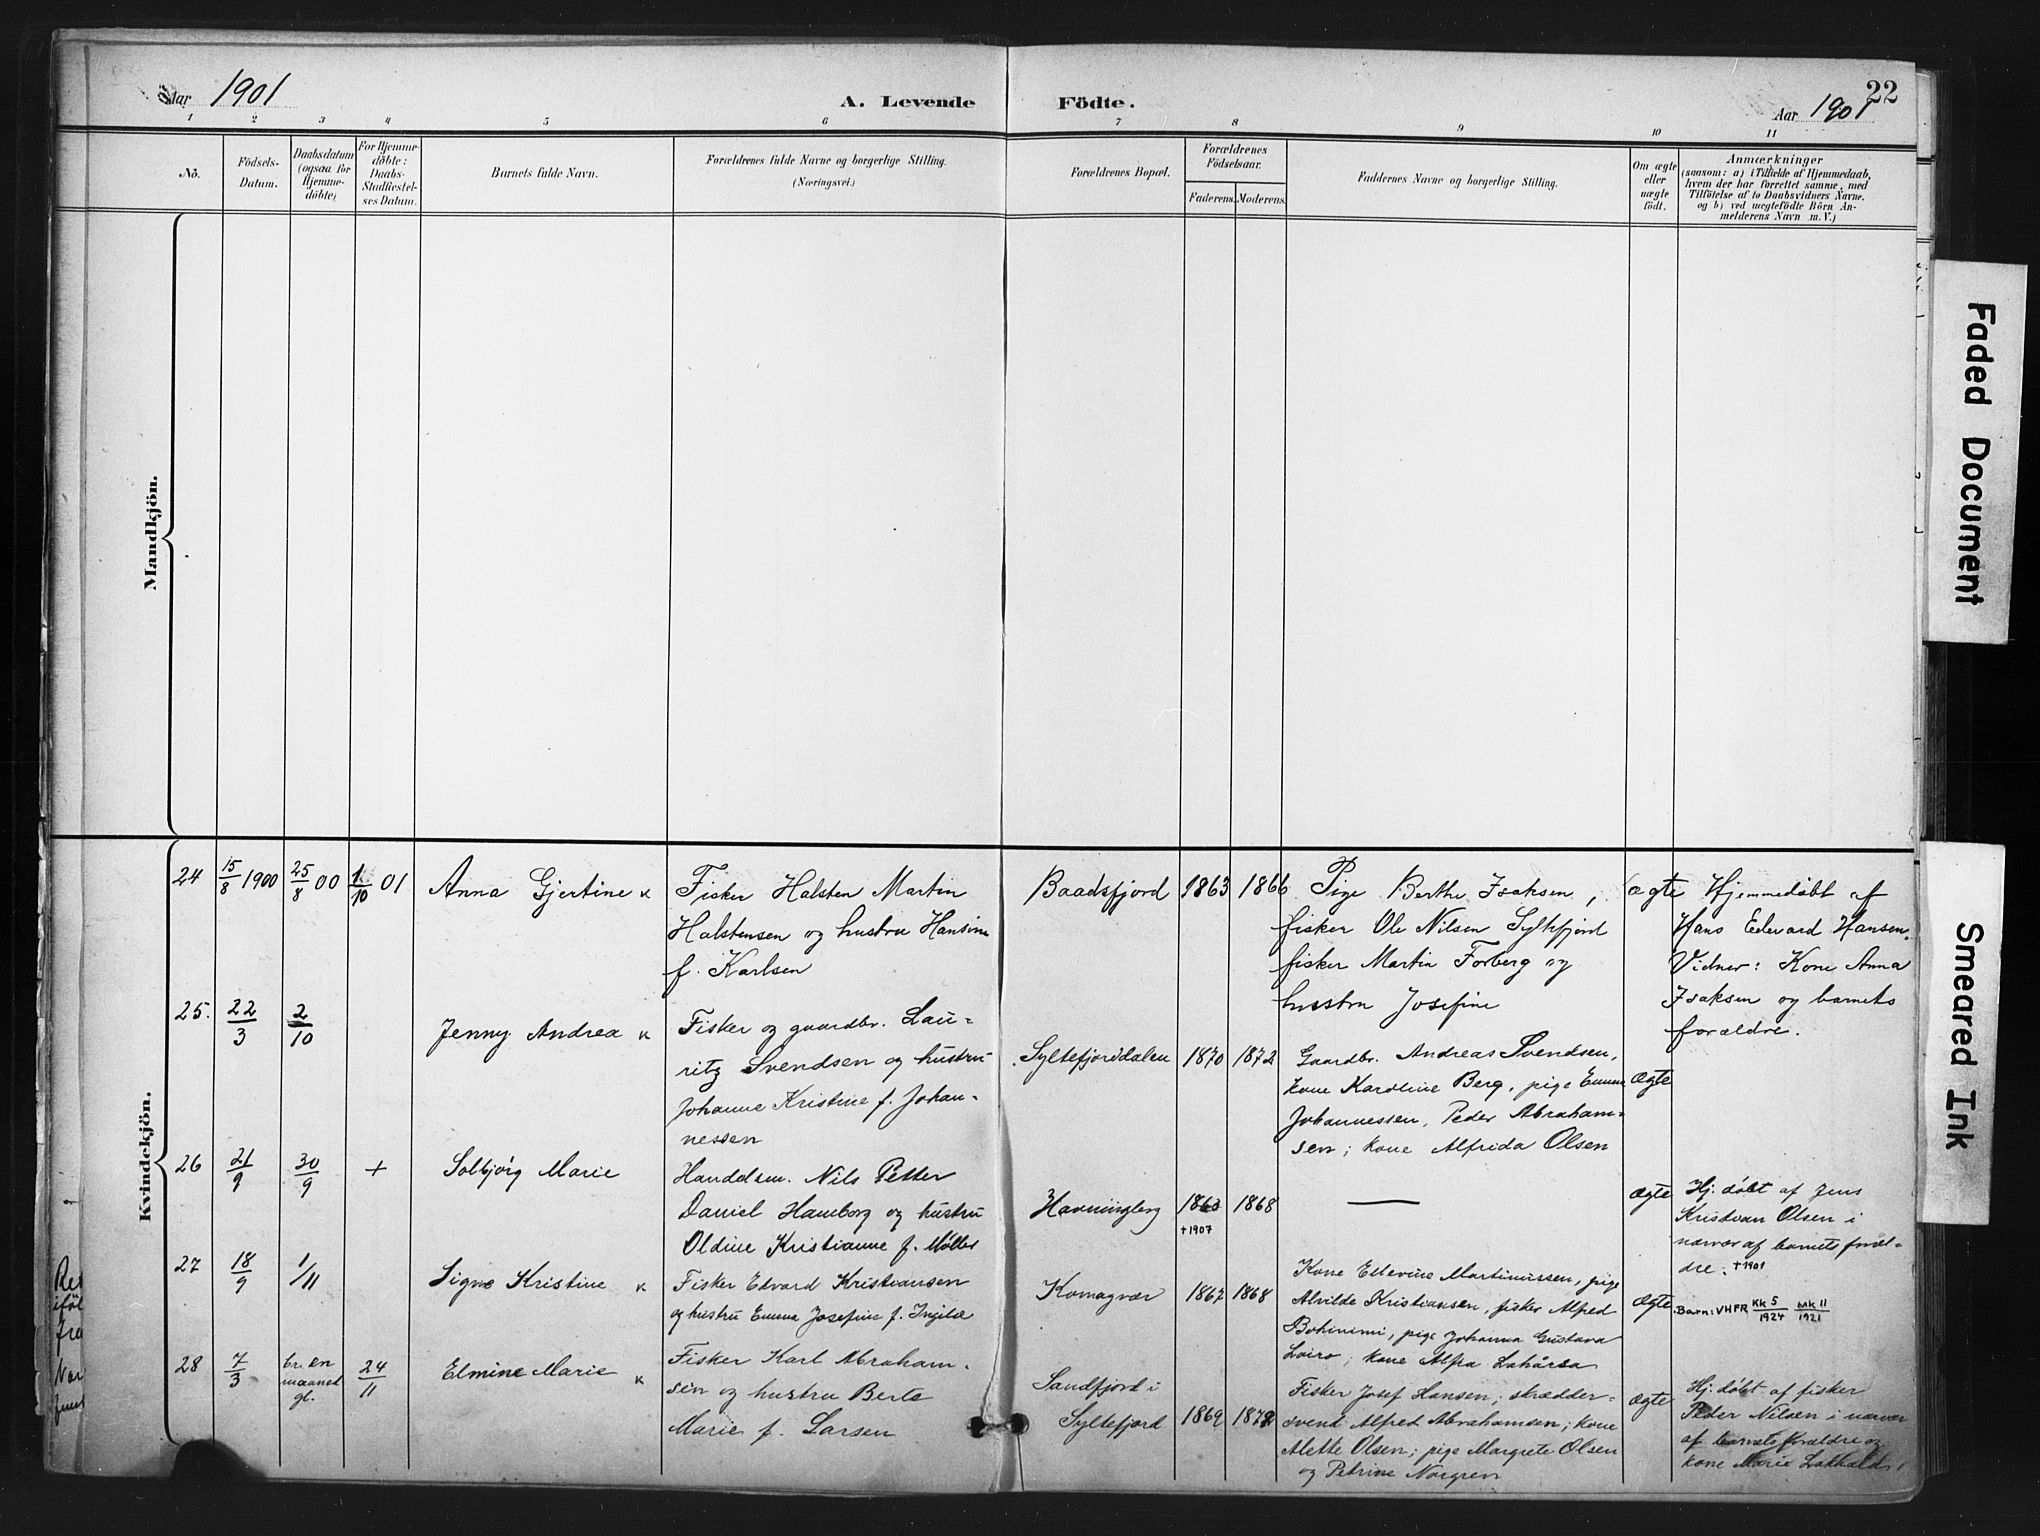 Aar 1901
A. Levende Födte.
22
Aar 1901
1 2 3 4 5 6 7 8 9 10 11
No.
Födsels-Datum.
Daabsdatum (ogsaa for Hjemme-döbte)
For Hjemme-döbte: Daabs-Stadfæstel-ses Datum.
Barnets fulde Navn.
Forældrenes fulde Navne og borgerlige Stilling.
(Næringsvei.)
Forældrenes Bopæl.
Forældrenes Födselsaar.
Faderens. Moderens.
Faddernes Navne og borgerlige Stilling.
Om ægte eller uægte födt.
Anmærkninger
(saasom: a) i Tilfælde af Hjemmedaab,
hvem der har forrettet samme, med
Tilföielse af to Daabsvidners Navne.
og b) ved uegtefödte Börn An-
melderens Navn m.V.)
Mandkjön.
Kvindekjön.
24 15/8 1900 25/8 00 1/10 01 Anna Gjertine
Fisker Halsten Martin
Halstensen og hustru Hansine
f. Karlsen
Baadsfjord 1863 1866
Pige Berthe Isaksen,
fisker Ole Nilsen Syltefjord
fisker Martin Forberg og
hustru Josefine
ægte
Hjemmedöbt af
Hans Edvard Hansen.
Vidner: Kone Anna
Isaksen og barnets
forældre.
25. 22/3 2/10 Jenny Andrea
Fisker og gaardbr. Lau-
ritz Svendsen og hustru
Johanne Kristine f. Johan-
nessen
Syltefjorddalen 1870 1872
Gaardbr. Andreas Svendsen,
kone Karoline Berg, pige Emma
Johannessen, Peder Abraham-
sen; kone Alfrida Olsen
ægte
26 21/9 30/9 + Solbjörg Marie
Handelsm. Nils Petter
Daniel Hamborg og hustru
Oldine Kristianne f. Möller
Havningberg 1863 1868
+1907
—
ægte
Hj. döbt af Jens
Kristian Olsen i
nærvær af barnets foræl-
dre. +1901
27 18/9 1/11 Signe Kristine
Fisker Edvard Kristiansen
og hustru Emma Josefine f.
Komagvær 1867 1868
Kone Ellevine Martinussen, pige
Alvilde Kristiansen, fisker Alfred
pige Johanna Gustava
kone
ægte
Barn: VHFR Kk 5/1924 Mk 11/1921
28 7/3 br. en maaned gl. 24/11 Elmine Marie
Fisker Karl Abraham-
sen og hustru Berte
Marie f. Larsen
Sandfjord i
Syltefjord 1869 1872
Fisker Josef Hansen; skrædder-
svend Alfred Abrahamsen; kone
Alette Olsen; pige Margrete Olsen
og Petrine Norgren
ægte
Hj. döbt af fisker
Peder Nilsen i nærvær
af barnets forældre og
kone Marie
Faded Document
Smeared Ink